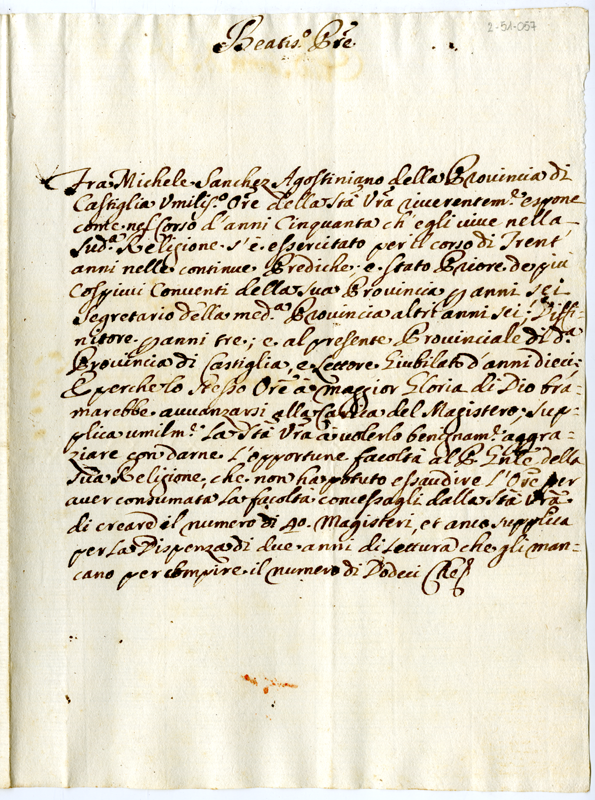 2-51-057
Beatis.º Pre
Fra Michele Sanchez Agostiniano della Provincia di
Castiglia Umiliss.º Ore della Stà Vrà riverentem.e espone
come nel Corso d'anni Cinquanta ch'egli vive nella
sud.ª Religione s'è essercitato per il corso di Trent'
anni nelle continue Prediche, e stato Priore de più
Cospicui Conventi della sua Provincia p anni sei
Segretario della med.ª Provincia altri anni sei; Diffi=
nitore p anni tre; e al presente Provinciale di d.ª
Provincia di Castiglia, e Lettore Giubilato d'anni dieci;
E perche lo stesso Ore à maggior Gloria di Dio bra=
marebbe avvanzarsi alla Carica del Magistero; Sup=
plica umilm.e La Stà Vrà à volerlo benignam.e aggra=
ziare con darne L'opportune facoltà al P. Gnle della
sua Religione, che non ha potuto essaudire L'Ore per
aver consumata La facoltà concessagli dalla Stà Vrà
di creare il numero di 40. Magisteri, et anco supplica
per La Dispenza di due anni di Lettura che gli man=
cano per compire il numero di Dodeci Che